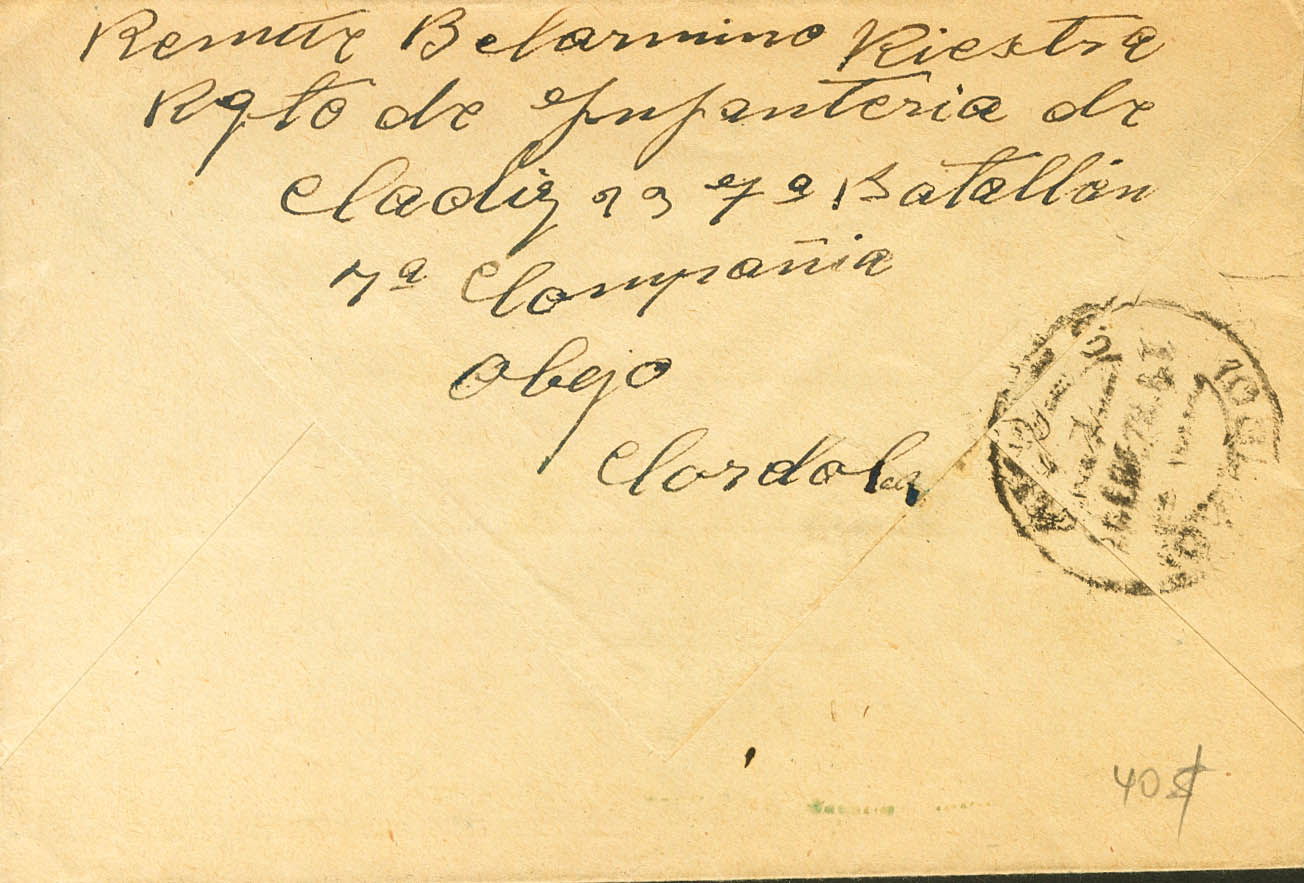 Remite Belarmino Riestra
Rgto de Infanteria de
Cadiz 33 7ª Batallón
7ª Compañia
Obejo
Cordoba
40$